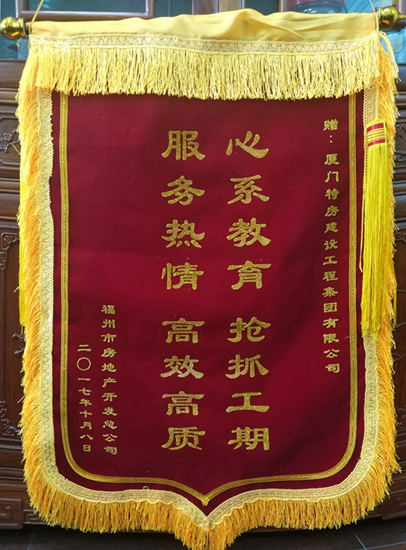 赠：厦门特房建设工程集团有限公司
心系教育 抢抓工期
服务热情 高效高质
福州市房地产开发总公司
二〇一七年十月八日